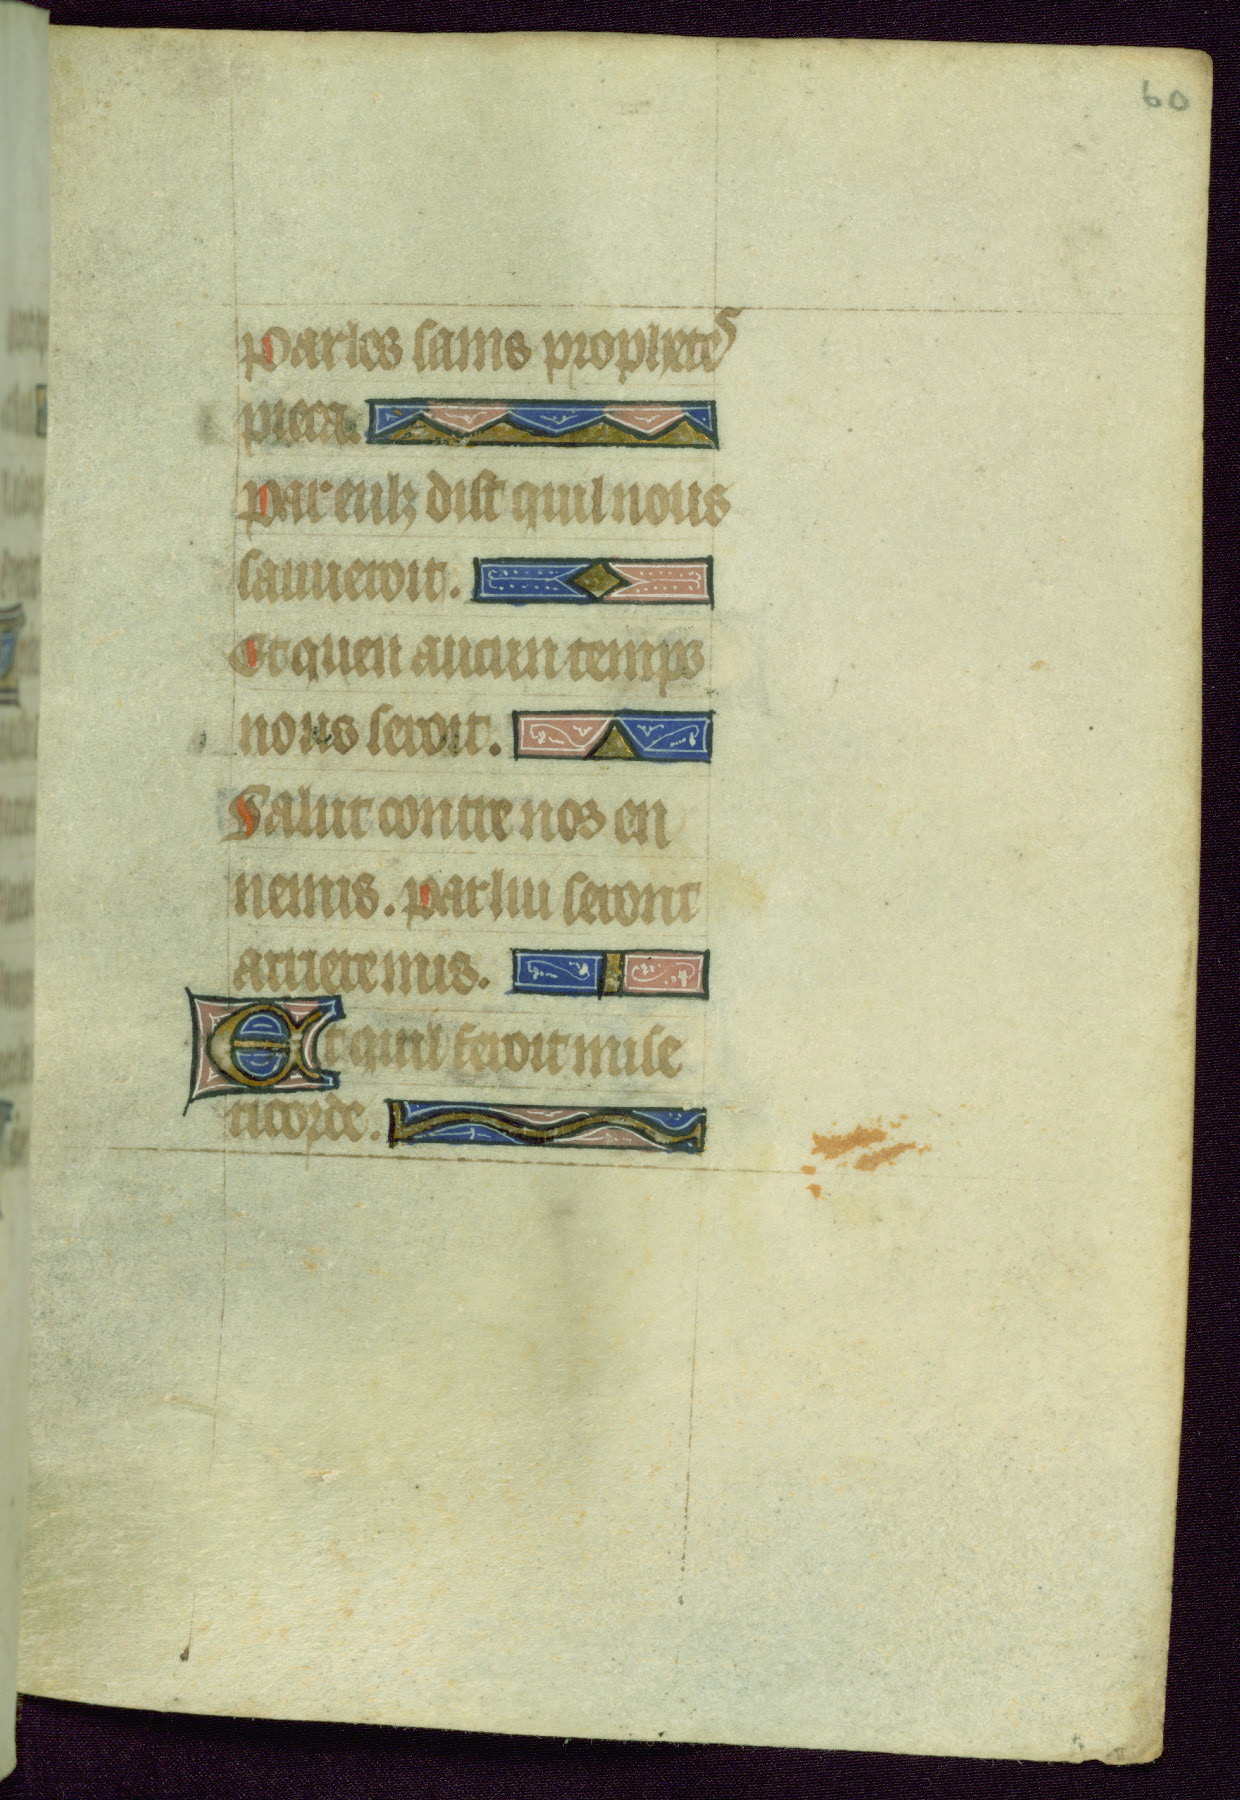 60
Par les sains prophetes
piera.
Par eulz dist quil nous
sauueroit.
Et quen aucun temps
nous seroit.
Salut contre nos en
nemis. Par lui seront
arriere mis.
Et quil feroit mise
ricorde.